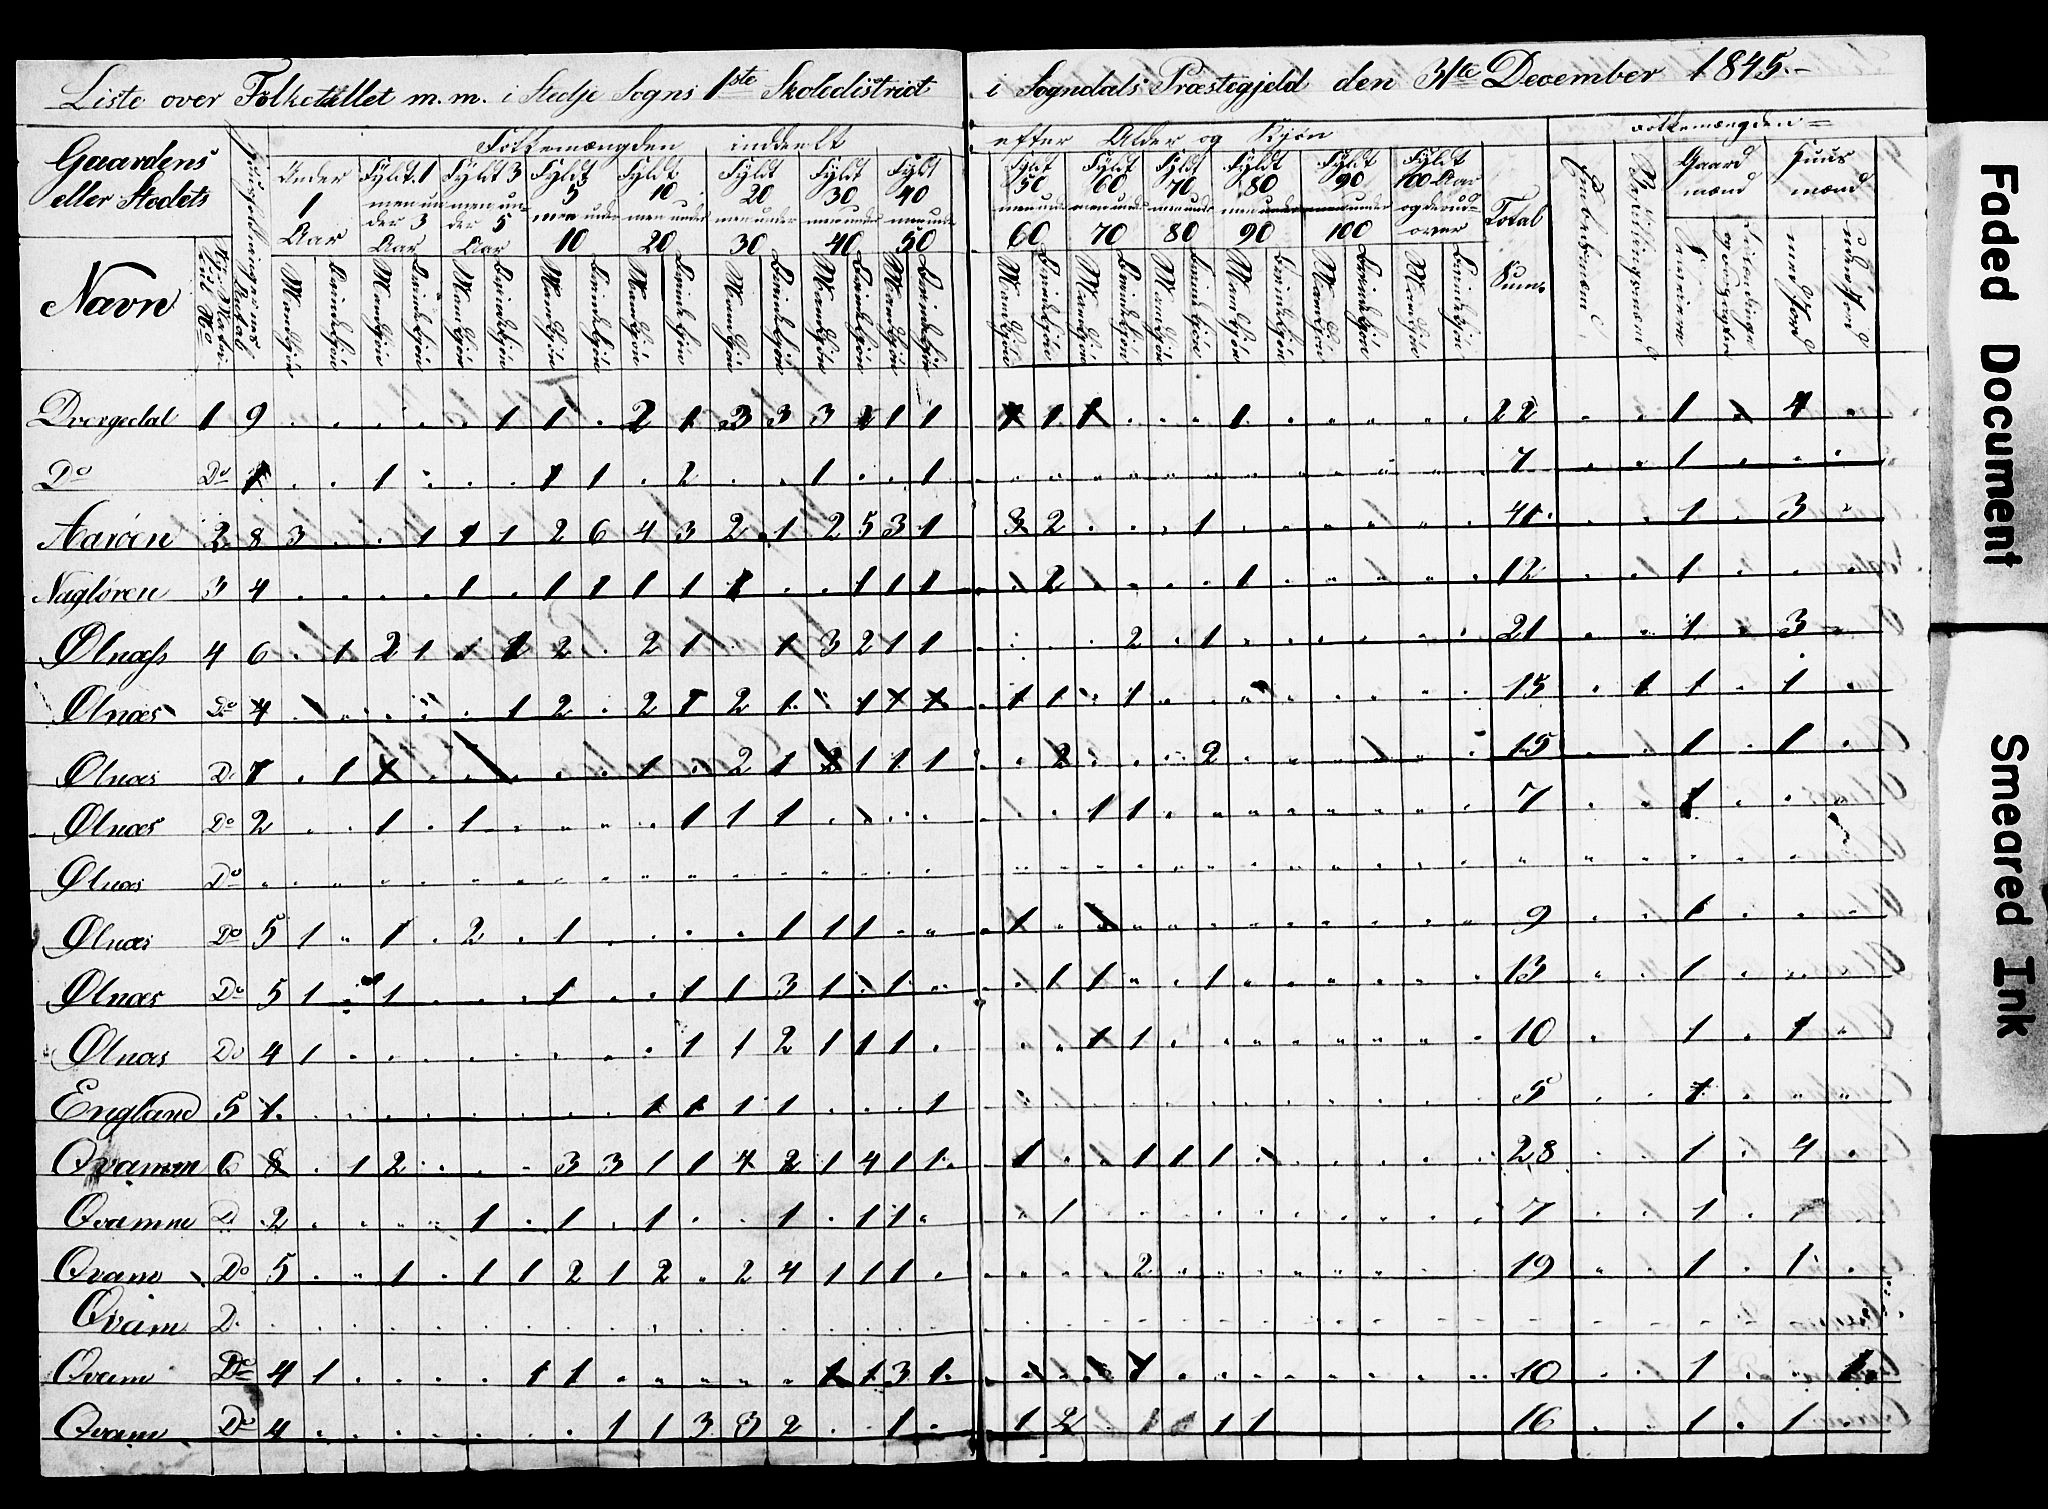 Liste over Folketallet m. m. i Stedje Sogns 1ste Skoledistrict i Sogndals Præstegjeld den 31te December 1845.
Folkemængden inddeelt efter Alder og Kjøn
Folkemængden
Gaardens eller Stedets
Under 1 Aar
Fyldt 1 men under 3 Aar
Fyldt 3 men under 5 Aar
Fyldt 5 men under 10
Fyldt 10 men under 20
Fyldt 20 men under 30
Fyldt 30 men under 40
Fyldt 40 men under 50
Fyldt 50 men under 60
Fyldt 60 men under 70
Fyldt 70 men under 80
Fyldt 80 men under 90
Fyldt 90 men under 100
Fyldt 100 Aar og derud- over
Total Sum
Gaard mænd
Huus mænd
Navn
Mandkjøn Qvindekjøn
Dvergedal 1 9 1 1 2 1 3 3 3 1 1 1 1 1 1 22 1 4
Do Do 1 1 1 1 2 1 1 7 1
Aarøen 2 8 3 1 1 1 2 6 4 3 2 1 2 5 3 1 3 2 1 41 1 3
Nagløren 3 4 1 1 1 1 1 1 1 1 1 2 1 12 1
Ølnæss 4 6 1 2 1 1 1 2 2 1 1 3 2 1 1 2 1 21 1 3
Ølnæs Do 4 1 2 2 1 2 1 1 1 1 1 1 1 15 1 1 1
Ølnæs Do 7 1 1 1 2 1 2 1 1 1 2 2 15 1 1
Ølnæs Do 2 1 1 1 1 1 1 1 7 1
Ølnæs Do
Ølnæs Do 5 1 1 2 1 1 1 1 1 9 1
Ølnæs Do 5 1 1 1 1 1 3 1 1 1 1 1 13 1
Ølnæs Do 4 1 1 1 2 1 1 1 1 1 10 1 1
England 5 1 1 1 1 1 1 5 1
Qvamm 6 8 1 2 3 3 1 1 4 2 1 4 1 1 1 1 1 1 28 1 4
Qvamme D. 2 1 1 1 1 1 1 1 7 1
Qvam Do 5 1 1 1 2 1 2 2 4 1 1 1 2 19 1 1
Qvam D.
Qvam Do 4 1 1 1 1 1 3 1 1 10 1 1
Qvam Do 4 1 1 3 3 2 1 1 2 1 1 16 1 1
Faded Document
Smeared Ink